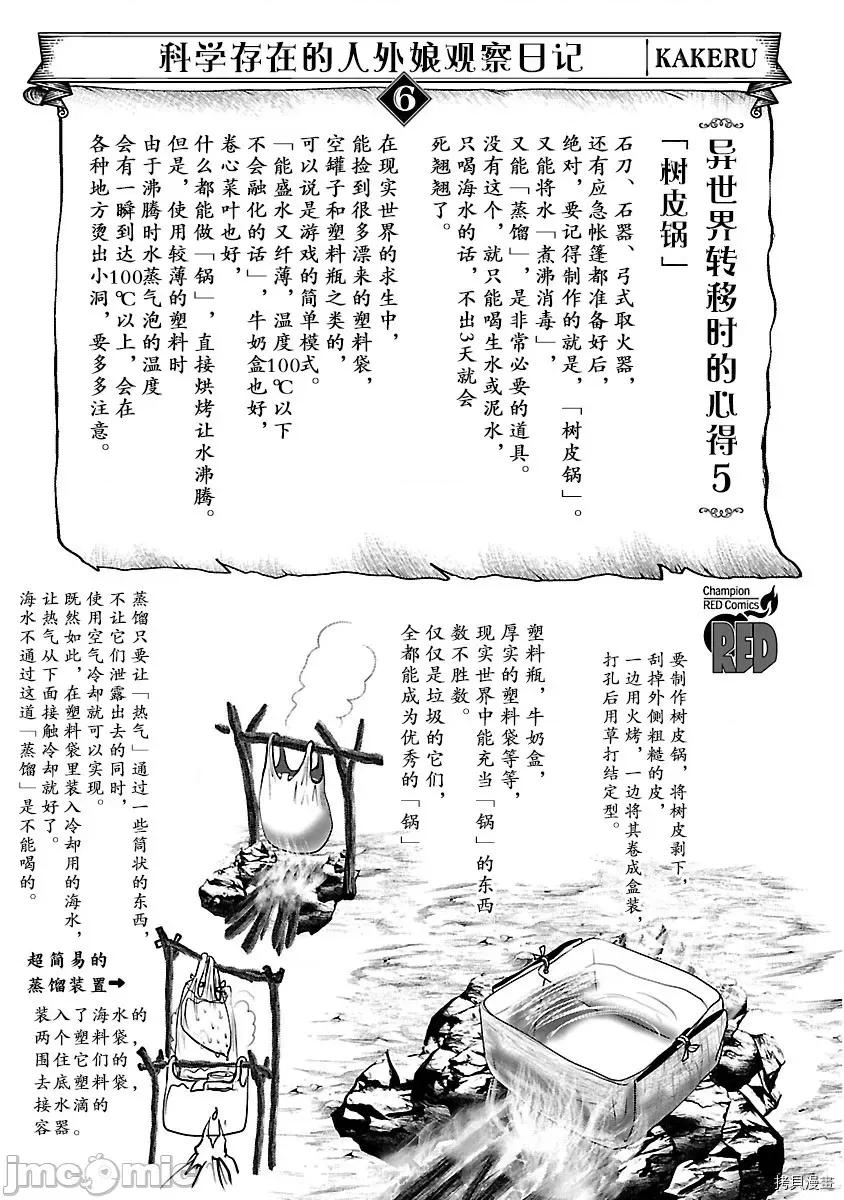 科学存在的人外娘观察日记
KAKERU
6
异世界转移时的心得5
「树皮锅」
石刀、石器、弓式取火器，
还有应急帐篷都准备好后，
绝对，要记得制作的就是，「树皮锅」。
又能将水「煮沸消毒」，
又能「蒸馏」，是非常必要的道具。
没有这个，就只能喝生水或泥水，
只喝海水的话，不出3天就会
死翘翘了。
在现实世界的求生中，
能捡到很多漂来的塑料袋，
空罐子和塑料瓶之类的，
可以说是游戏的简单模式。
「能盛水又纤薄，温度100℃以下
不会融化的话」，牛奶盒也好，
卷心菜叶也好，
什么都能做「锅」，直接烘烤让水沸腾。
但是，使用较薄的塑料时
由于沸腾时水蒸气泡的温度
会有一瞬到达100℃以上，会在
各种地方烫出小洞，要多多注意。
Champion
RED Comics
RED
要制作树皮锅，将树皮剥下，
刮掉外侧粗糙的皮，
一边用火烤，一边将其卷成盒装，
打孔后用草打结定型。
塑料瓶，牛奶盒，
厚实的塑料袋等等，
现实世界中能充当「锅」的东西
数不胜数。
仅仅是垃圾的它们，
全都能成为优秀的「锅」
蒸馏只要让「热气」通过一些筒状的东西，
不让它们泄露出去的同时，
使用空气冷却就可以实现。
既然如此，在塑料袋里装入冷却用的海水，
让热气从下面接触冷却就好了。
海水不通过这道「蒸馏」是不能喝的。
超简易的
蒸馏装置➡
装入了海水的
两个塑料袋，
围住它们的
去底塑料袋，
接水滴的
容器。
jmcomic
拷貝漫畫